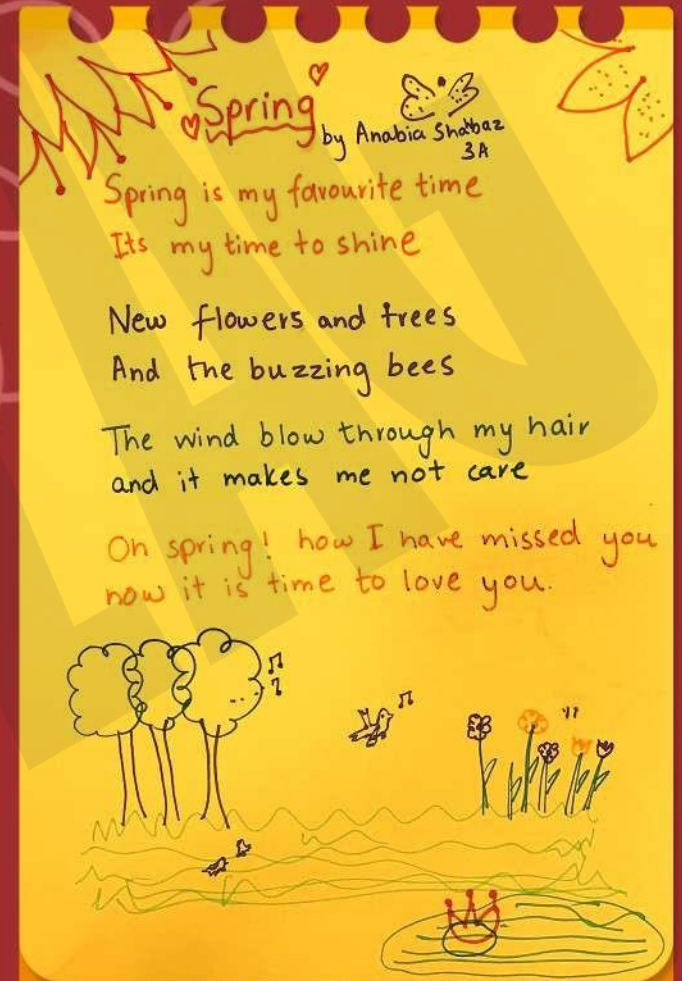 Spring
by Anabia Shahbaz
3A
Spring is my favourite time
Its my time to shine
New flowers and trees
And the buzzing bees
The wind blow through my hair
and it makes me not care
Oh spring! how I have missed you
now it is time to love you.